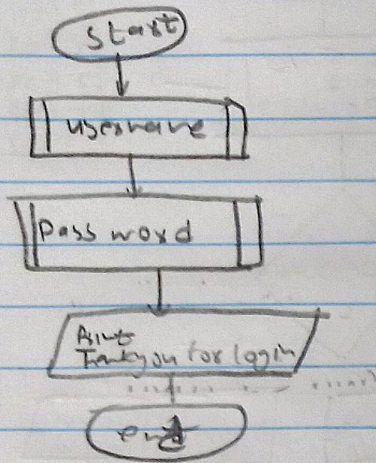 Start
username
Password
Print
Thankyou for login
end